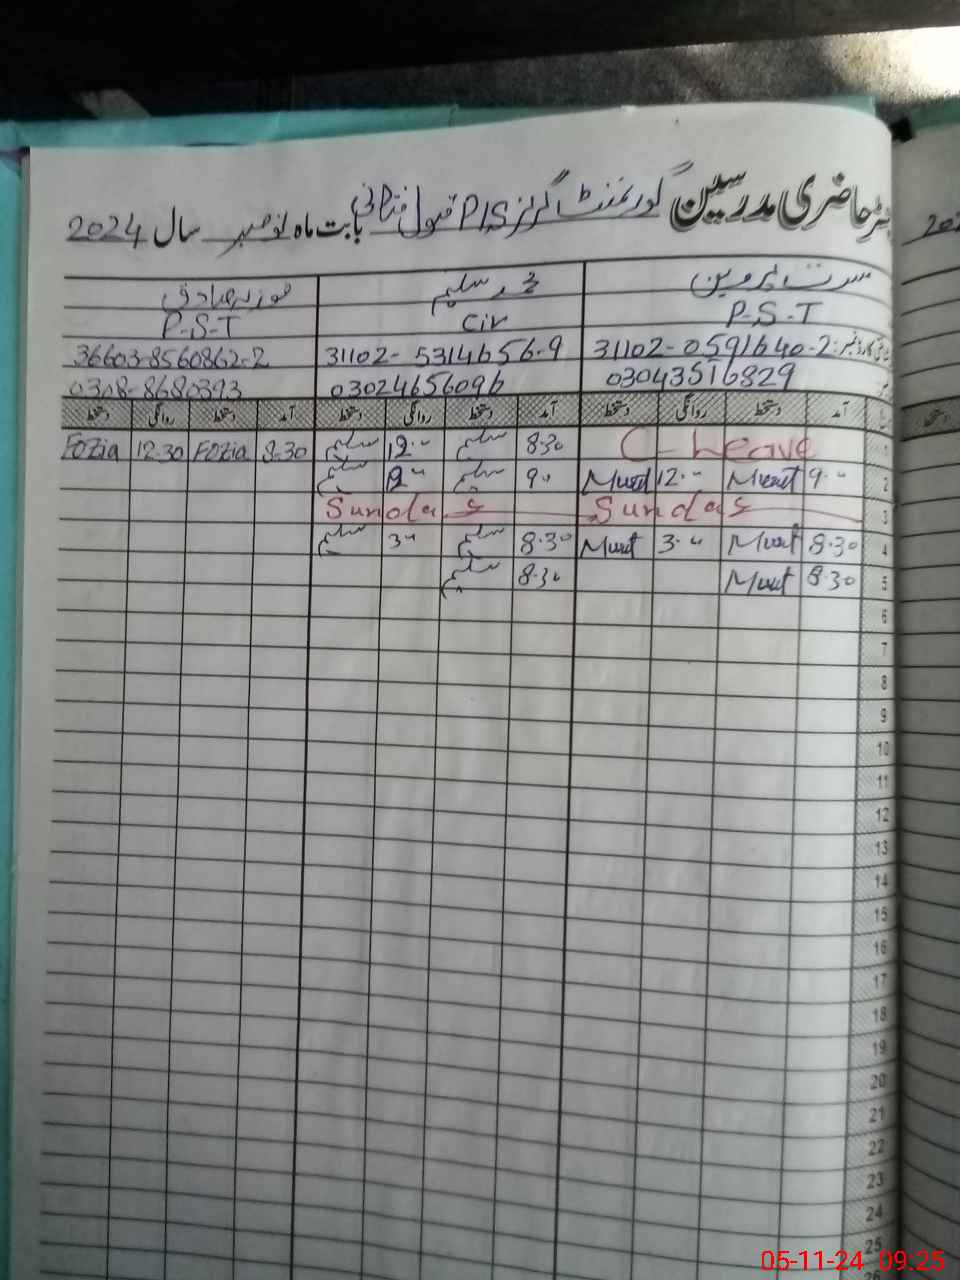 حاضری مدرسین گورنمنٹ گرلز P/S قبول فتیانی بابت ماہ نومبر سال 2024
مسرت پروین محمد سلیم فوزیہ صادق
P-S-T Civ P-S-T
31102-0591640-2 31102-5314656-9 36603-8560862-2
03043516829 03024656096 0308-8680393
آمد دستخط روانگی دستخط آمد دستخط روانگی دستخط آمد دستخط روانگی دستخط
1 C-Leave 8.30 سلیم 12.00 سلیم 8-30 Fozia 12.30 Fozia
2 9.00 Musrt 12.00 Musrt 9.0 سلیم 12.00 سلیم
3 Sunday Sunday
4 8.30 Musrt 3.00 Musrt 8.30 سلیم 3.00 سلیم
5 8.30 Musrt 8.30 سلیم
6
7
8
9
10
11
12
13
14
15
16
17
18
19
20
21
22
23
24
25
05-11-24 09:25